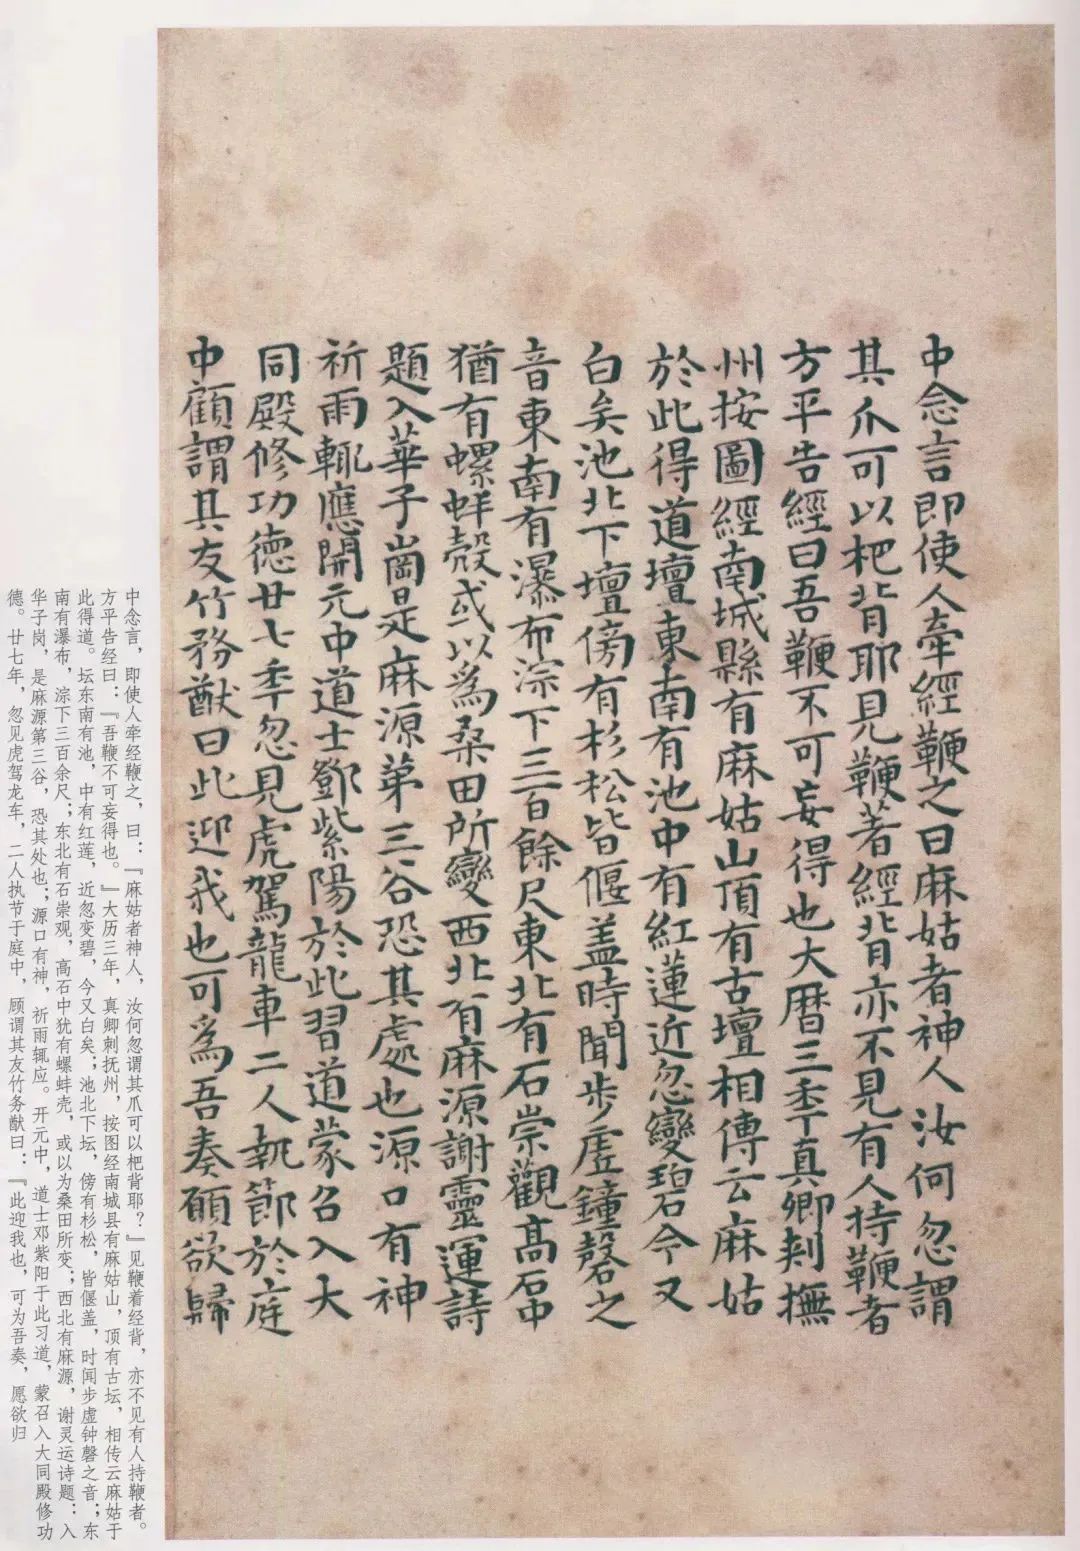 中念言即使人牽經鞭之曰麻姑者神人汝何忽謂
其爪可以杷背耶見鞭著經背亦不見有人持鞭者
方平告經曰吾鞭不可妄得也大曆三季真卿刾撫
州按圖經南城縣有麻姑山頂有古壇相傳云麻姑
於此得道壇東南有池中有紅蓮近忽變碧今又
白矣池北下壇傍有杉松皆偃盖時聞步虛鐘磬之
音東南有瀑布淙下三百餘尺東北有石崇觀高石中
猶有螺蚌殼或以爲桑田所變西北有麻源謝靈運詩
題入華子崗是麻源第三谷恐其處也源口有神
祈雨輒應開元中道士鄧紫陽於此習道蒙召入大
同殿修功德廿七季忽見虎駕龍車二人執節於庭
中顧謂其友竹務猷曰此迎我也可爲吾奏願欲歸
中念言，即使人牵经鞭之，曰：『麻姑者神人，汝何忽谓其爪可以杷背耶？』见鞭着经背，亦不见有人持鞭者。
方平告经曰：『吾鞭不可妄得也。』大历三年，真卿刺抚州，按图经南城县有麻姑山，顶有古坛，相传云麻姑于
此得道。坛东南有池，中有红莲，近忽变碧，今又白矣；池北下坛，傍有杉松，皆偃盖，时闻步虚钟磬之音；东
南有瀑布，淙下三百余尺；东北有石崇观，高石中犹有螺蚌壳，或以为桑田所变；西北有麻源，谢灵运诗题：入
华子岗，是麻源第三谷，恐其处也；源口有神，祈雨辄应。开元中，道士邓紫阳于此习道，蒙召入大同殿修功
德。廿七年，忽见虎驾龙车，二人执节于庭中，顾谓其友竹务猷曰：『此迎我也，可为吾奏，愿欲归